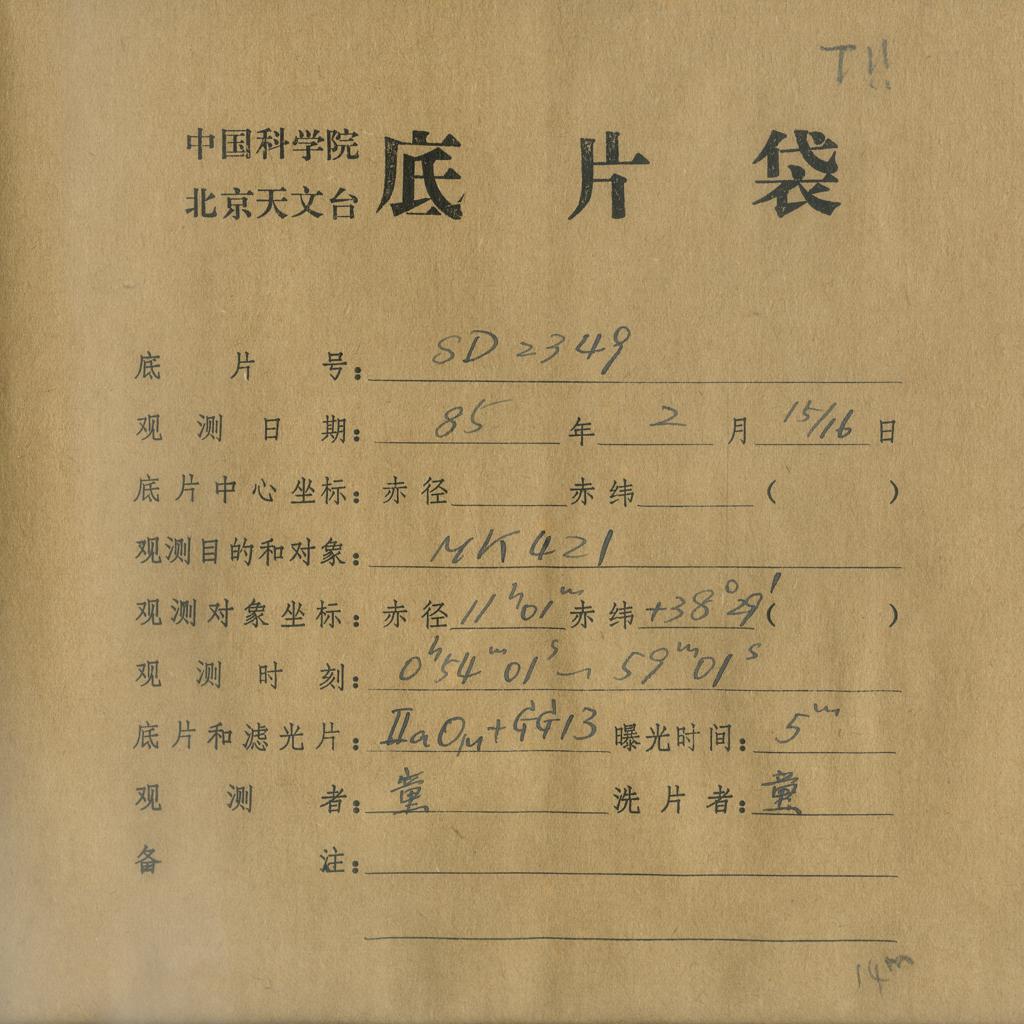 T!!
中国科学院
北京天文台 底片袋
底片号: SD 2349
观测日期: 85 年 2 月 15/16 日
底片中心坐标: 赤径 赤纬 ( )
观测目的和对象: MK 421
观测对象坐标: 赤径 11ʰ01ᵐ 赤纬 +38°29′ ( )
观测时刻: 0ʰ54ᵐ01ˢ — 59ᵐ01ˢ
底片和滤光片: IIaO + GG13 曝光时间: 5ᵐ
观测者: 童 洗片者: 童
备注:
14ᵐ